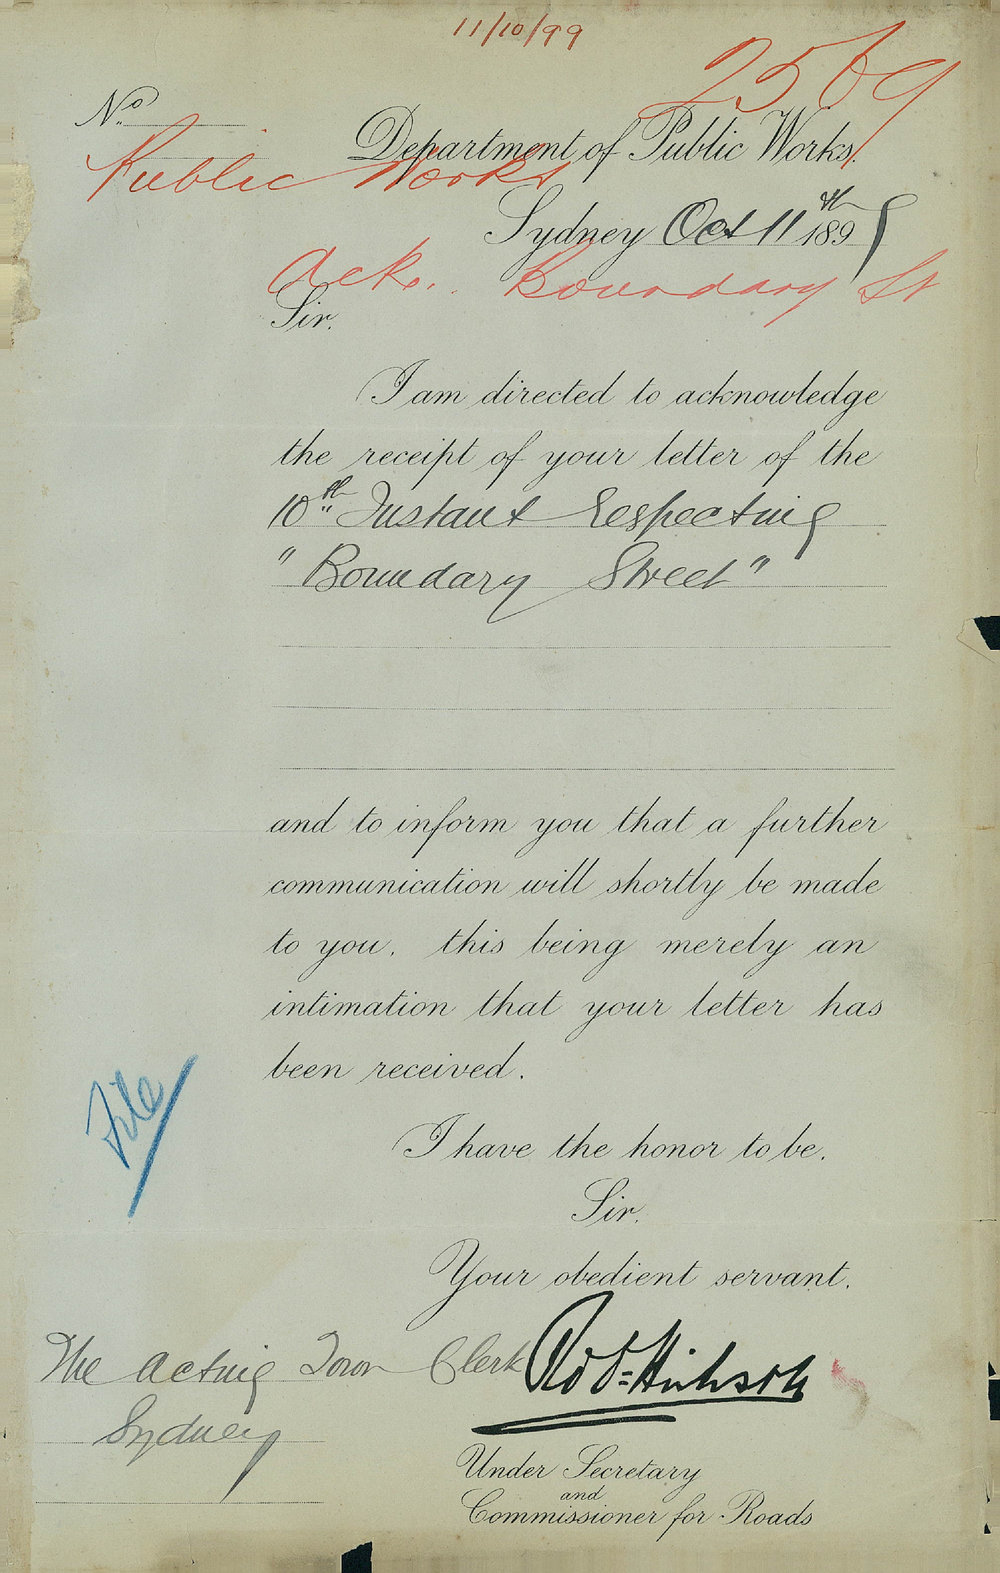 11/10/99
2569
No.
Department of Public Works.
Public Works
Sydney Oct 11th 1899
Ack. Boundary St
Sir,
I am directed to acknowledge
the receipt of your letter of the
10th Instant respecting
"Boundary Street"
and to inform you that a further
communication will shortly be made
to you, this being merely an
intimation that your letter has
been received.
File
I have the honor to be,
Sir,
Your obedient servant,
The Acting Town Clerk
Sydney
Under Secretary
and
Commissioner for Roads